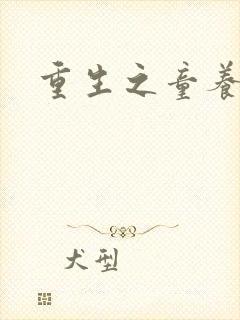 重生之童养
犬型